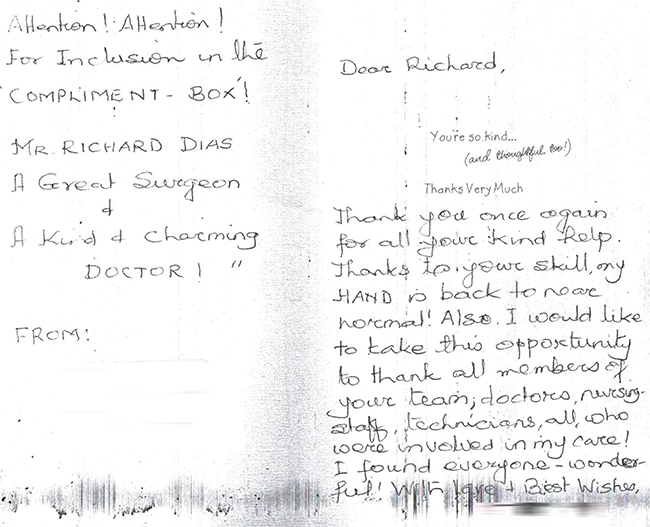 Attention! Attention!
For Inclusion in the
'COMPLIMENT - BOX'!
MR. RICHARD DIAS
A Great Surgeon
&
A Kind & Charming
DOCTOR! "
FROM:
Dear Richard,
You're so kind...
(and thoughtful too!)
Thanks Very Much
Thank you once again
for all your kind help.
Thanks to your skill, my
HAND is back to near
normal! Also, I would like
to take this opportunity
to thank all members of
your team; doctors, nursing-
staff, technicians, all, who
were involved in my care!
I found everyone - wonder-
ful! With love & Best Wishes,